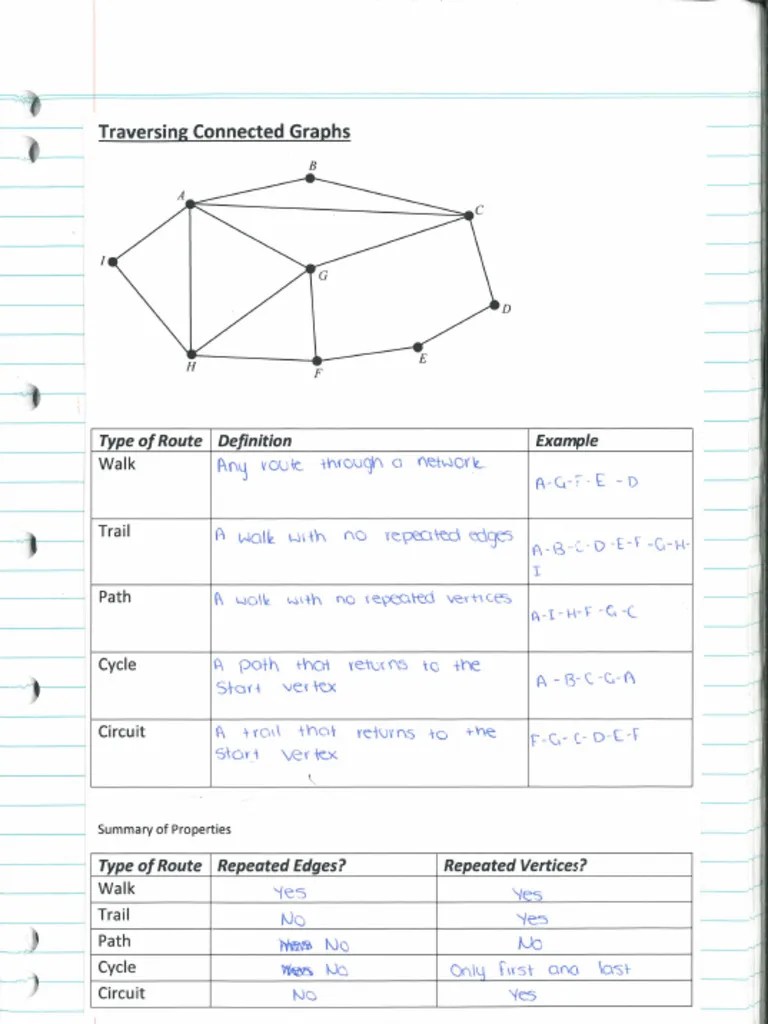 Traversing Connected Graphs
B
A
C
I
G
D
E
H
F
Type of Route Definition Example
Walk Any route through a network A-G-F-E-D
Trail A walk with no repeated edges A-B-C-D-E-F-G-H-
I
Path A walk with no repeated vertices A-I-H-F-G-C
Cycle A path that returns to the
Start vertex A-B-C-G-A
Circuit A trail that returns to the
Start vertex F-G-C-D-E-F
Summary of Properties
Type of Route Repeated Edges? Repeated Vertices?
Walk Yes Yes
Trail No Yes
Path No No
Cycle No Only first and last
Circuit No Yes